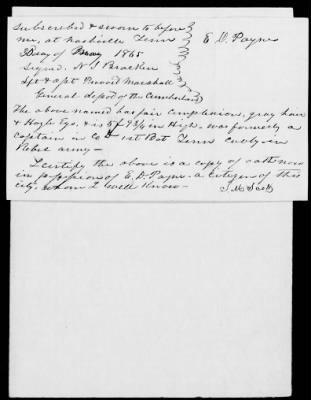 Subscribed & sworn to before
me, at Nashville Tenn E. D. Payne
day of May 1865
Signed. N S Bracken
Sgt & apt Provost Marshall
General depot of the Cumberland
The above named has fair Complexion, gray hair
& Hazle Eys, & is 5 f 9 3/4 in High. was formerly a
Captain in Co 1st Bat Tenn Cavly in
Rebel army -
I certify the above is a copy of oath now
in possesion of E. D. Payne - a Citizen of this
city. whom I well know -